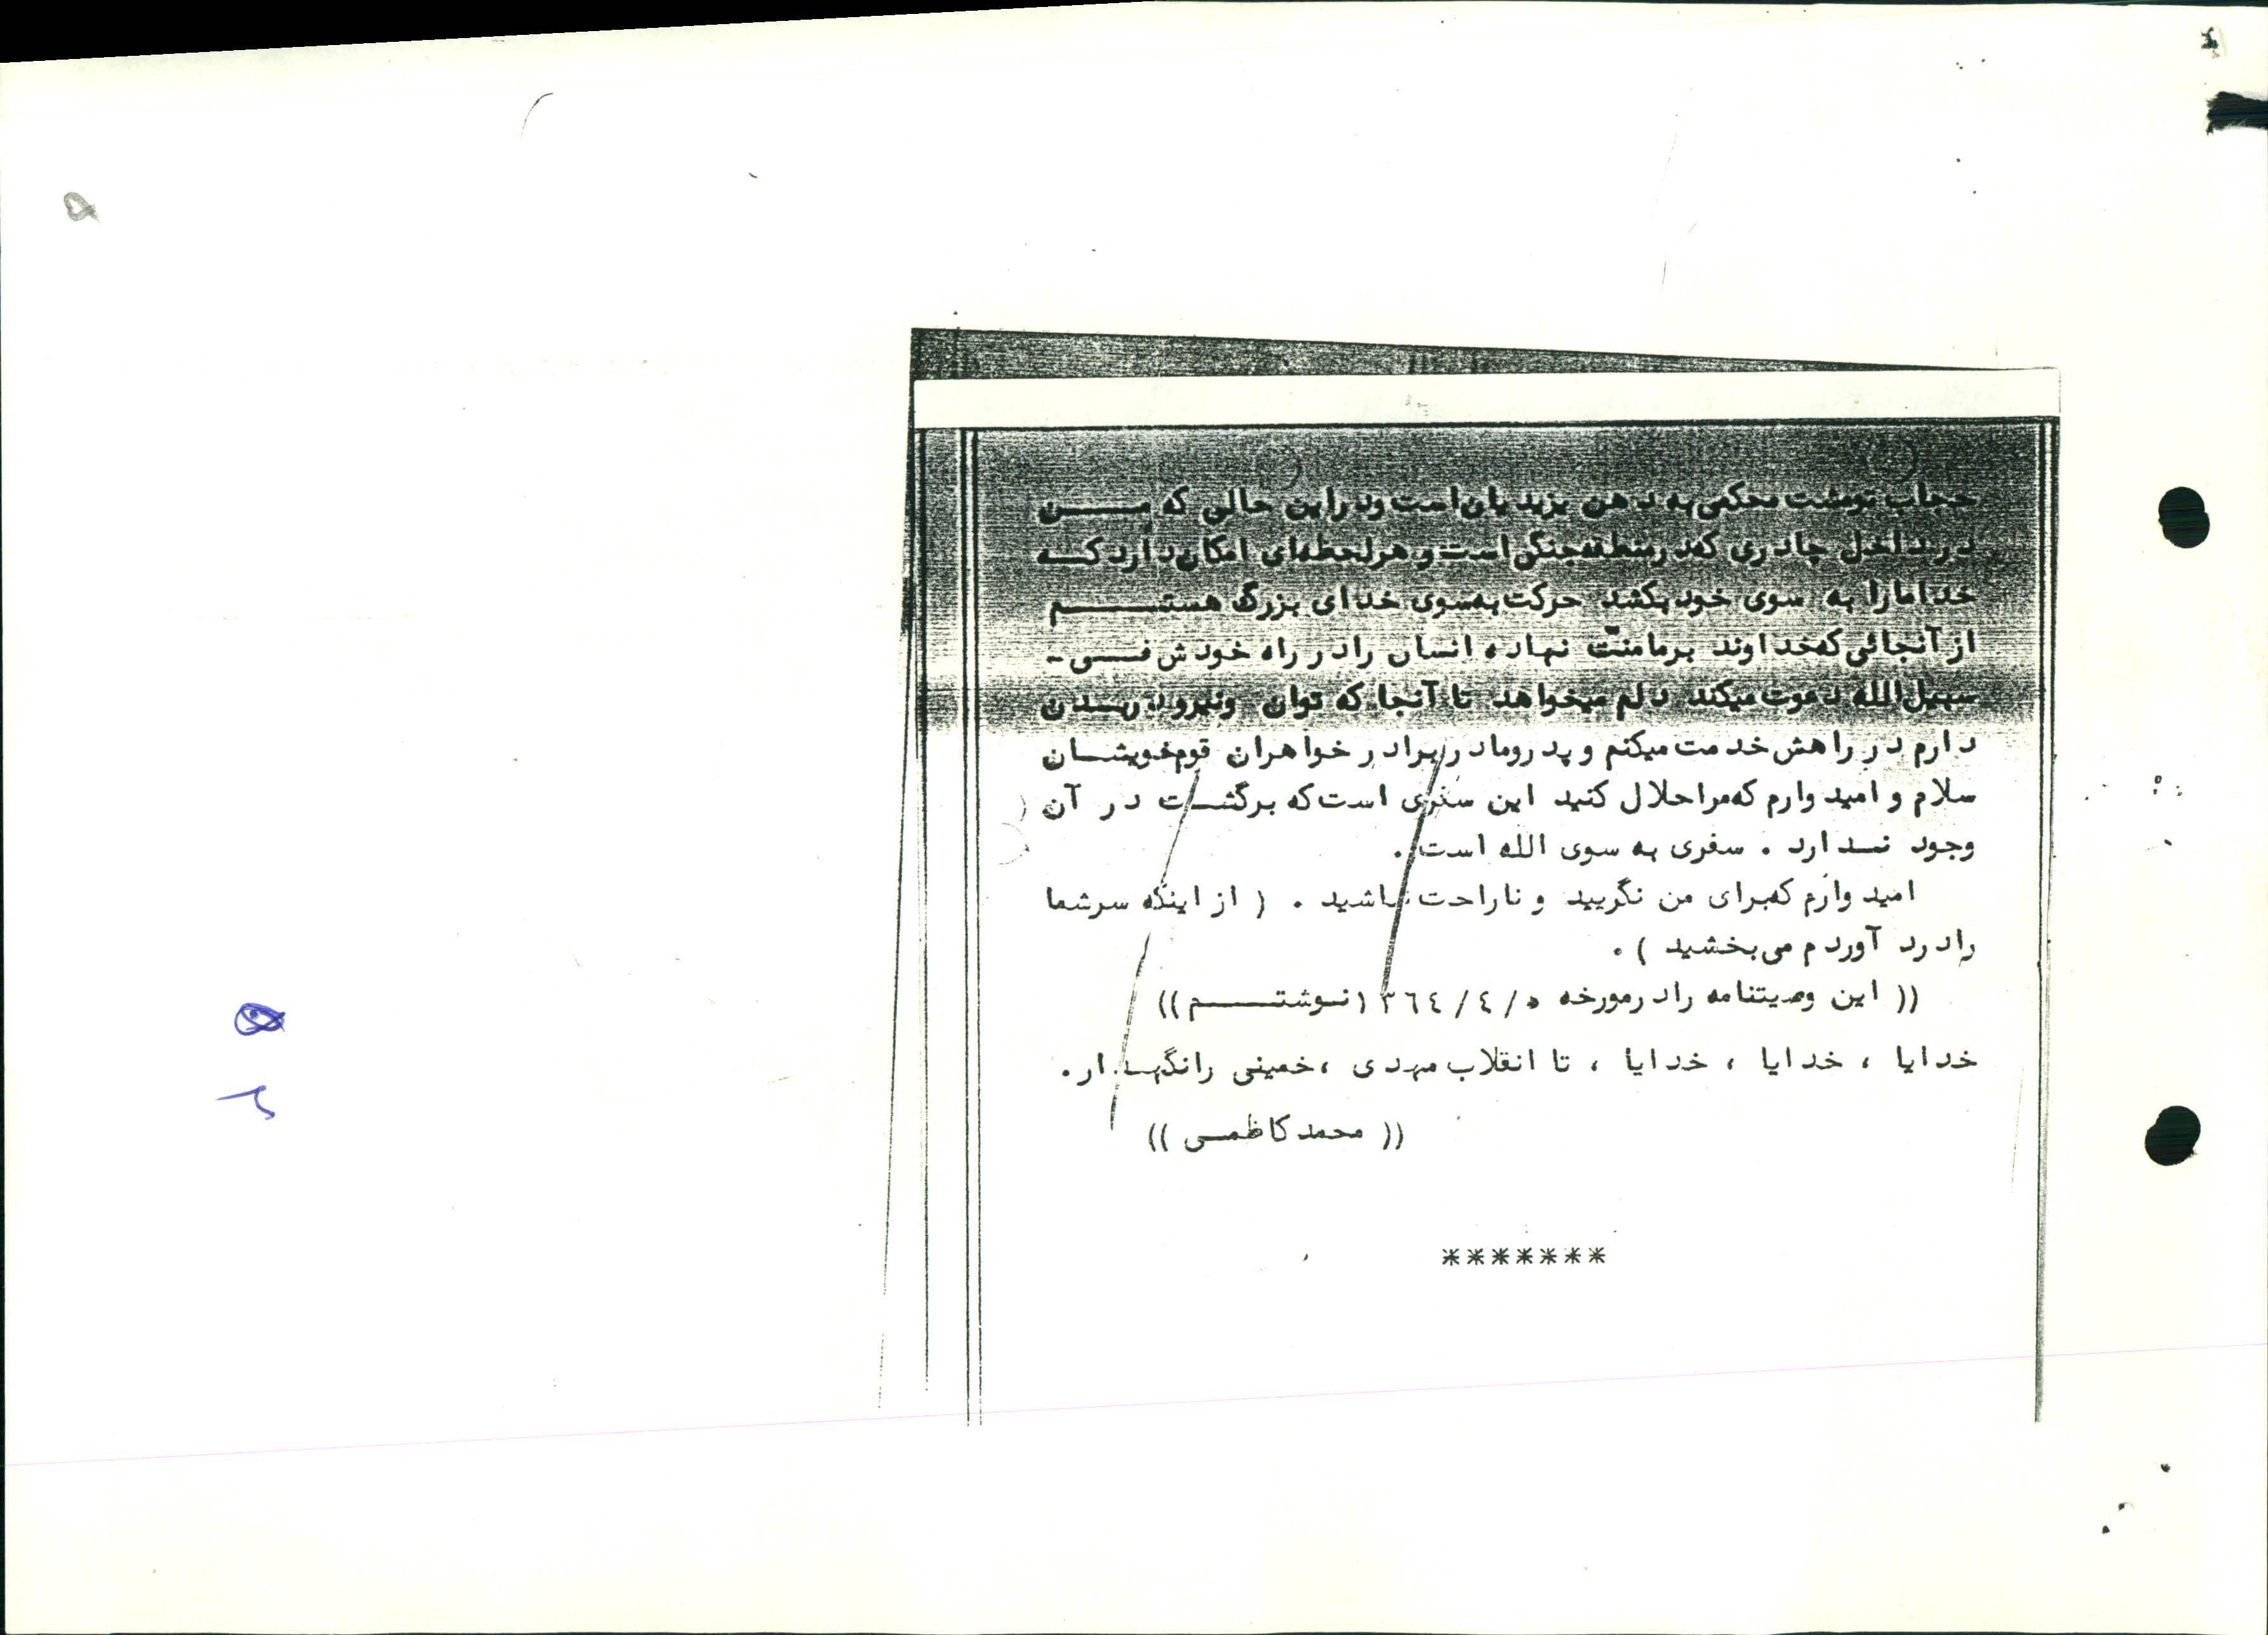 حجاب تو مشت محکمی به دهن یزیدیان است و در این حالی که مـــن
در داخل چادری که در منطقه جنگی است و هر لحظه‌ای امکان دارد کــه
خدا ما را به سوی خود بکشد حرکت به سوی خدای بزرگ هستـــم
از آنجائی که خداوند بر ما منّت نهاده انسان را در راه خودش فـــی -
سبیل الله دعوت میکند دلم میخواهد تا آنجا که توان و نیرو در بــدن
دارم در راهش خدمت میکنم و پدر و مادر برادر خواهران قوم خویشــان
سلام و امیدوارم که مرا حلال کنید این سفری است که برگشــت در آن
وجود نــدارد . سفری به سوی الله است .
امیدوارم که برای من نگریید و ناراحت نباشید . ( از اینکه سر شما
را درد آوردم می‌بخشید ) .
(( این وصیتنامه را در مورخه ٥ / ٤ / ١٣٦٤ نــوشتـــم ))
خدایا ، خدایا ، خدایا ، تا انقلاب مهدی ، خمینی را نگهــدار .
(( محمد کاظمــی ))
*******